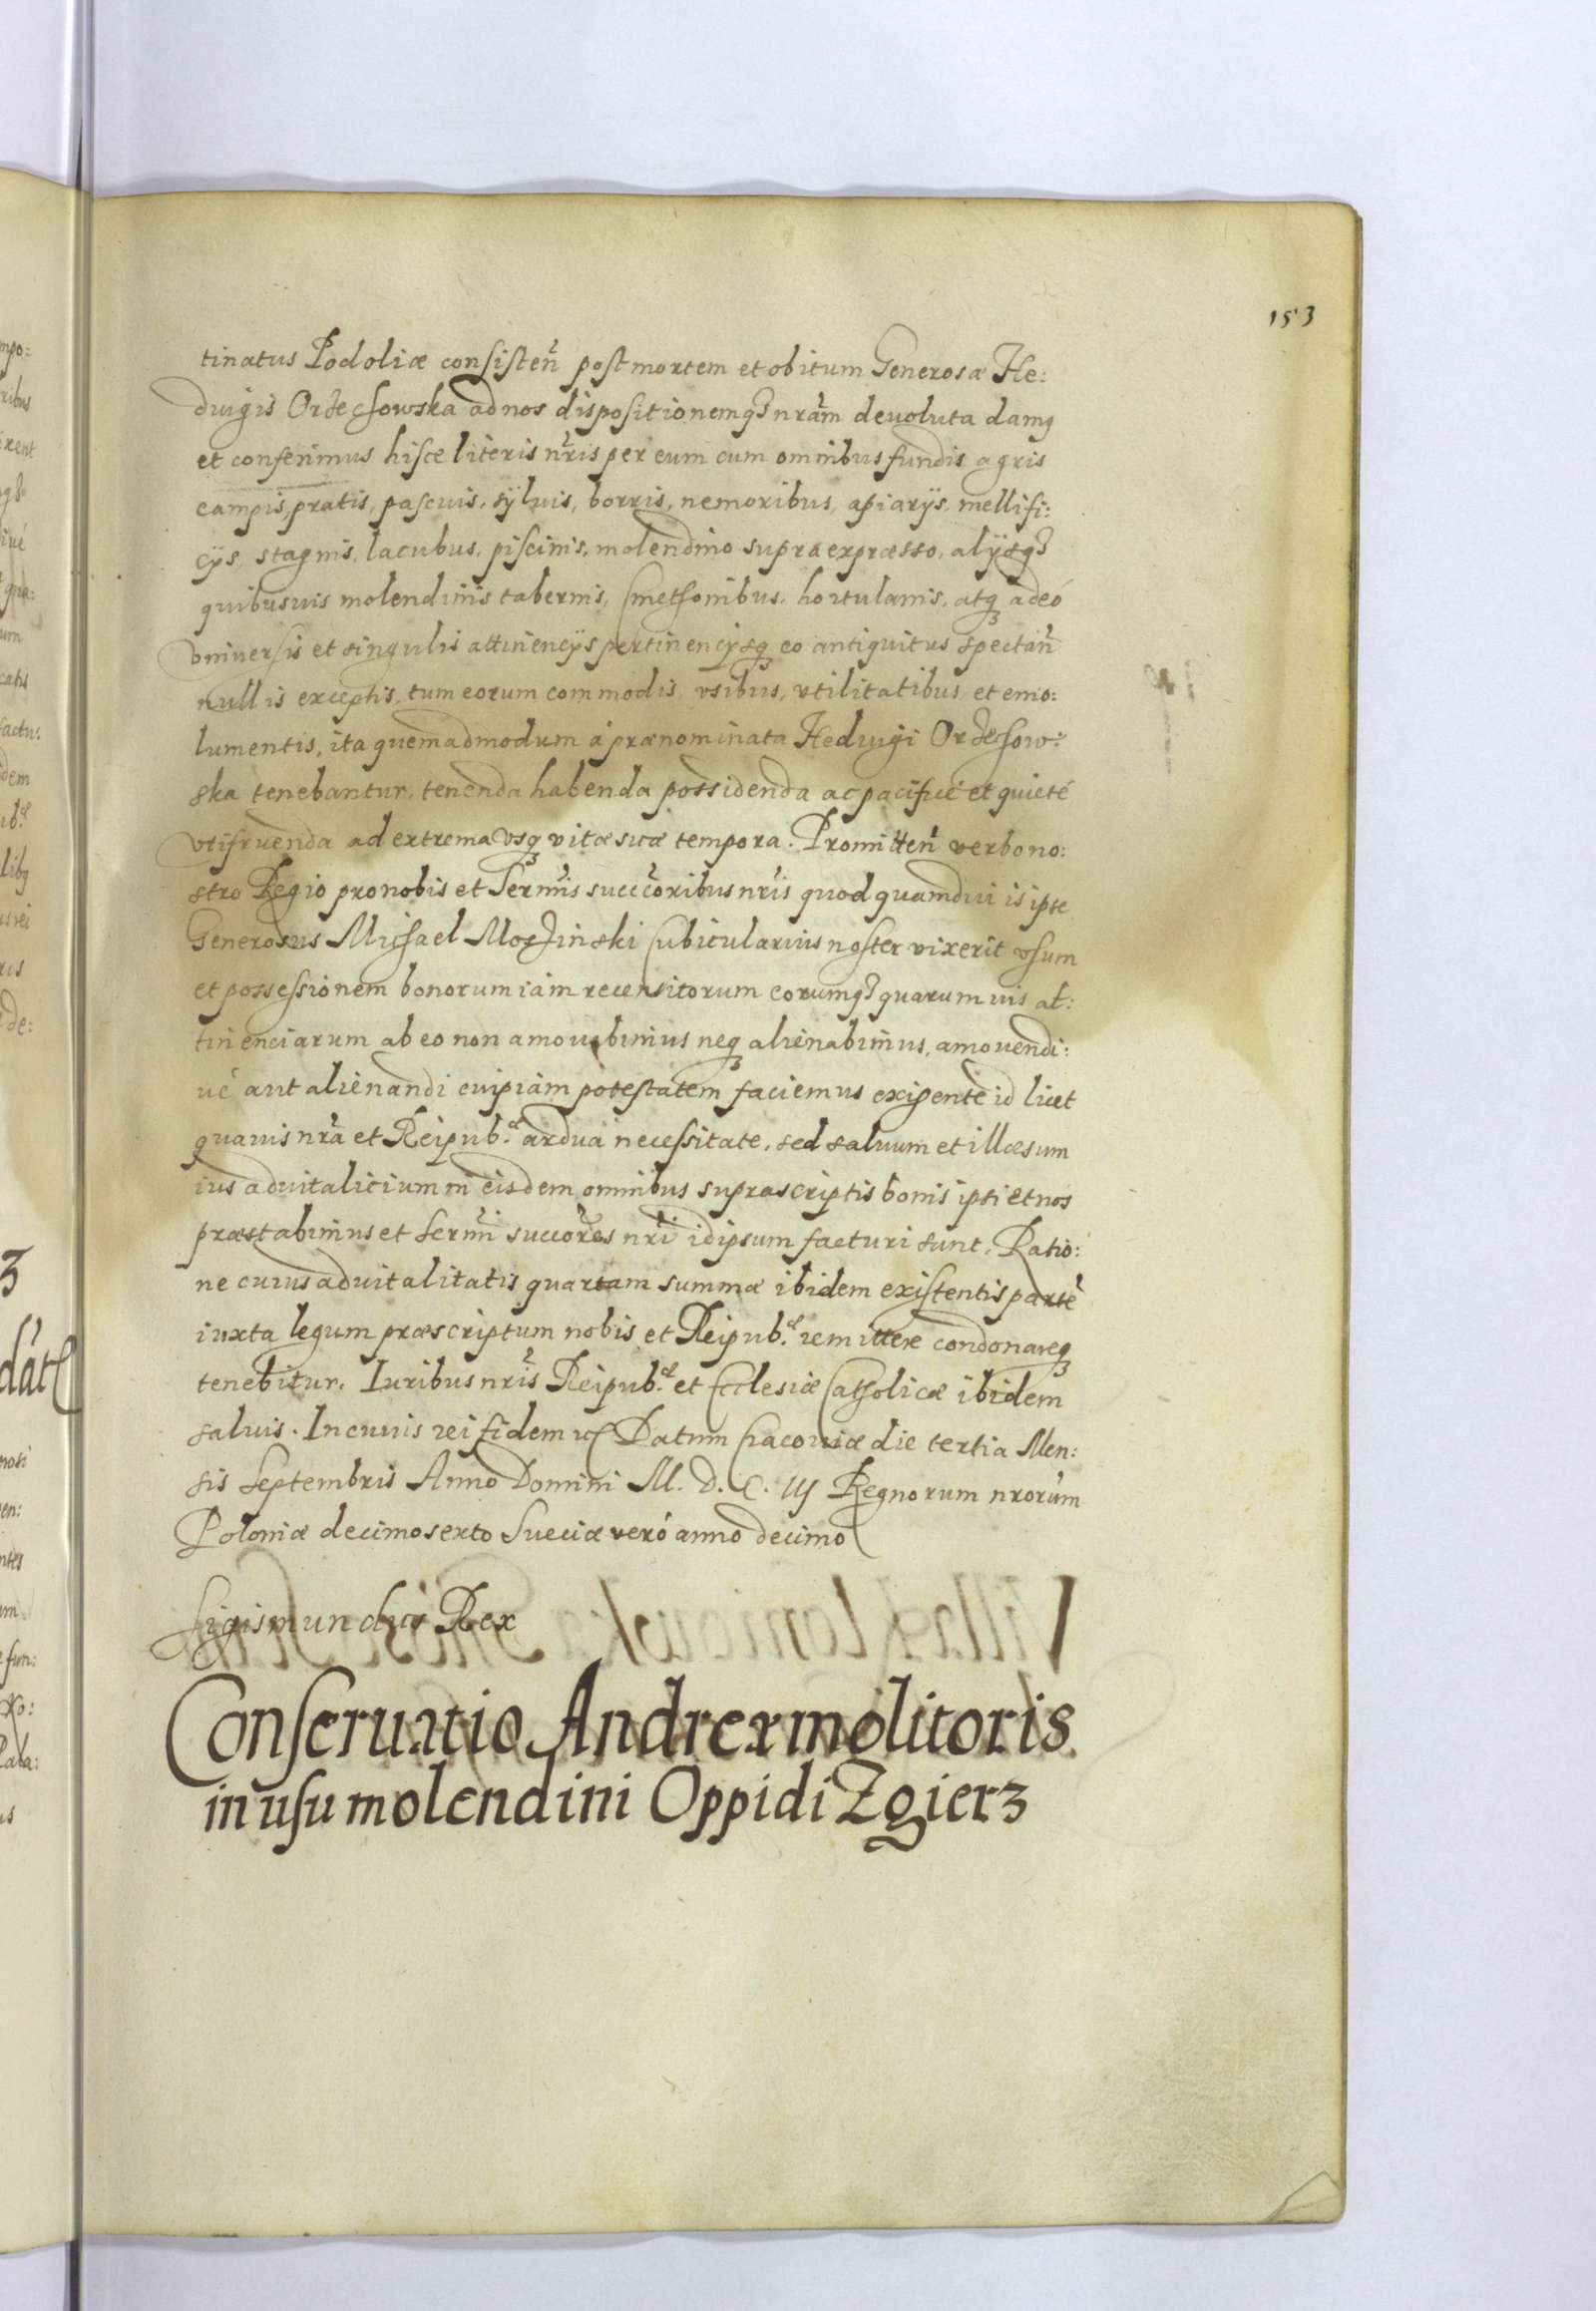 153
tinatus Podoliæ consisteñ post mortem et obitum Generosæ He:
duigis Ordechowska ad nos dispositionemq₃ nrãm deuoluta damꝯ
et conferimus hisce literis nr̃is per eum cum omnibus fundis agris
campis, pratis, pascuis, sÿluis, borris, nemoribus, apiarÿs, mellifi:
cÿs, stagnis, lacubus, piscinis, molendino supra expræsso, alÿsq₃
quibusuis molendinis tabernis, Cmethonibus, hortulanis, atq₃ adeó
vniuersis et singulis attinencÿs pertinencÿsq₃ eo antiquitus spectañ
nullis exceptis, tum eorum commodis, vsibus, vtilitatibus, et emo:
lumentis, ita quemadmodum á prænominata Heduigi Ordehow:
ska tenebantur, tenenda habenda possidenda ac pacificé et quieté
vtifruenda ad extrema vsq₃ vitæ suæ tempora. Promitteñ verbo no:
stro Regio pro nobis et Serm̃is succc̃oribus nr̃is quod quamdiu is ipse
Generosus Michael Moszinski Cubicularius noster vixerit vsum
et possessionem bonorum iam recensitorum eorumq₃ quarumuis at:
tinenciarum ab eo non amouebimus neq₃ alienabimus, amouendi:
ué aut alienandi cuipiam potestatem faciemus exigente id licet
quauis nr̃a et Reipub.æ ardua necessitate, sed saluum et illæsum
ius aduitalicium in eisdem omnibus suprascriptis bonis ipsi et nos
præstabimus et Serm̃i succor̃es nr̃i idipsum facturi sunt, Ratio:
ne cuius aduitalitatis quartam summæ ibidem existentis partẽ
iuxta legum præscriptum nobis et Reipub.æ remittere condonareq₃
tenebitur. Iuribus nr̃is Reipub.æ et Ecclesiæ Catholicæ ibidem
saluis. In cuius rei fidem etc. Datum Cracouiæ die tertia Men:
sis Septembris Anno Domini M. D. C. IIJ Regnorum nrorũm
Poloniæ decimosexto Sueciæ veró anno decimo
Sigismundus Rex
Conseruatio Andreæ molitoris
in usu molendini Oppidi Zgierz